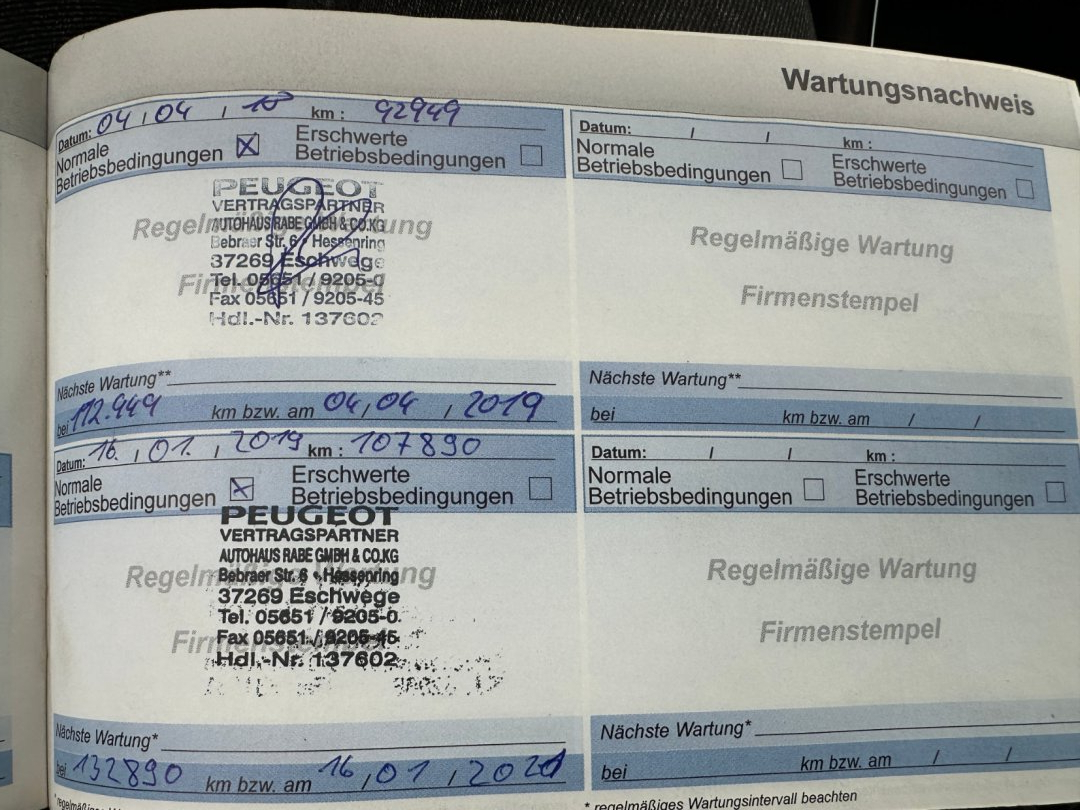 Wartungsnachweis
Datum: 04 / 04 / 18 km : 92949
Normale Betriebsbedingungen ☒ Erschwerte Betriebsbedingungen ☐
PEUGEOT
VERTRAGSPARTNER
AUTOHAUS RABE GMBH & CO.KG
Bebraer Str. 6 • Hessenring
37269 Eschwege
Tel. 05651 / 9205-0
Fax 05651 / 9205-45
Hdl.-Nr. 137602
Regelmäßige Wartung
Firmenstempel
Nächste Wartung**
bei 112.949 km bzw. am 04 / 04 / 2019
Datum: 16. / 01. / 2019 km : 107890
Normale Betriebsbedingungen ☒ Erschwerte Betriebsbedingungen ☐
PEUGEOT
VERTRAGSPARTNER
AUTOHAUS RABE GMBH & CO.KG
Bebraer Str. 6 • Hessenring
37269 Eschwege
Tel. 05651 / 9205-0
Fax 05651 / 9205-45
Hdl.-Nr. 137602
Regelmäßige Wartung
Firmenstempel
Nächste Wartung*
bei 132890 km bzw. am 16 / 01 / 2021
* regelmäßiges
Datum: / / km :
Normale Betriebsbedingungen ☐ Erschwerte Betriebsbedingungen ☐
Regelmäßige Wartung
Firmenstempel
Nächste Wartung**
bei km bzw. am / /
Datum: / / km :
Normale Betriebsbedingungen ☐ Erschwerte Betriebsbedingungen ☐
Regelmäßige Wartung
Firmenstempel
Nächste Wartung*
bei km bzw. am / /
* regelmäßiges Wartungsintervall beachten